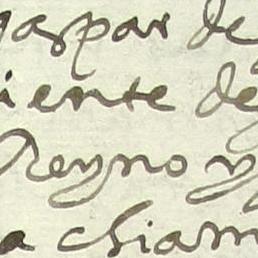 gaspar de
iente de
Reyno y
a chiam